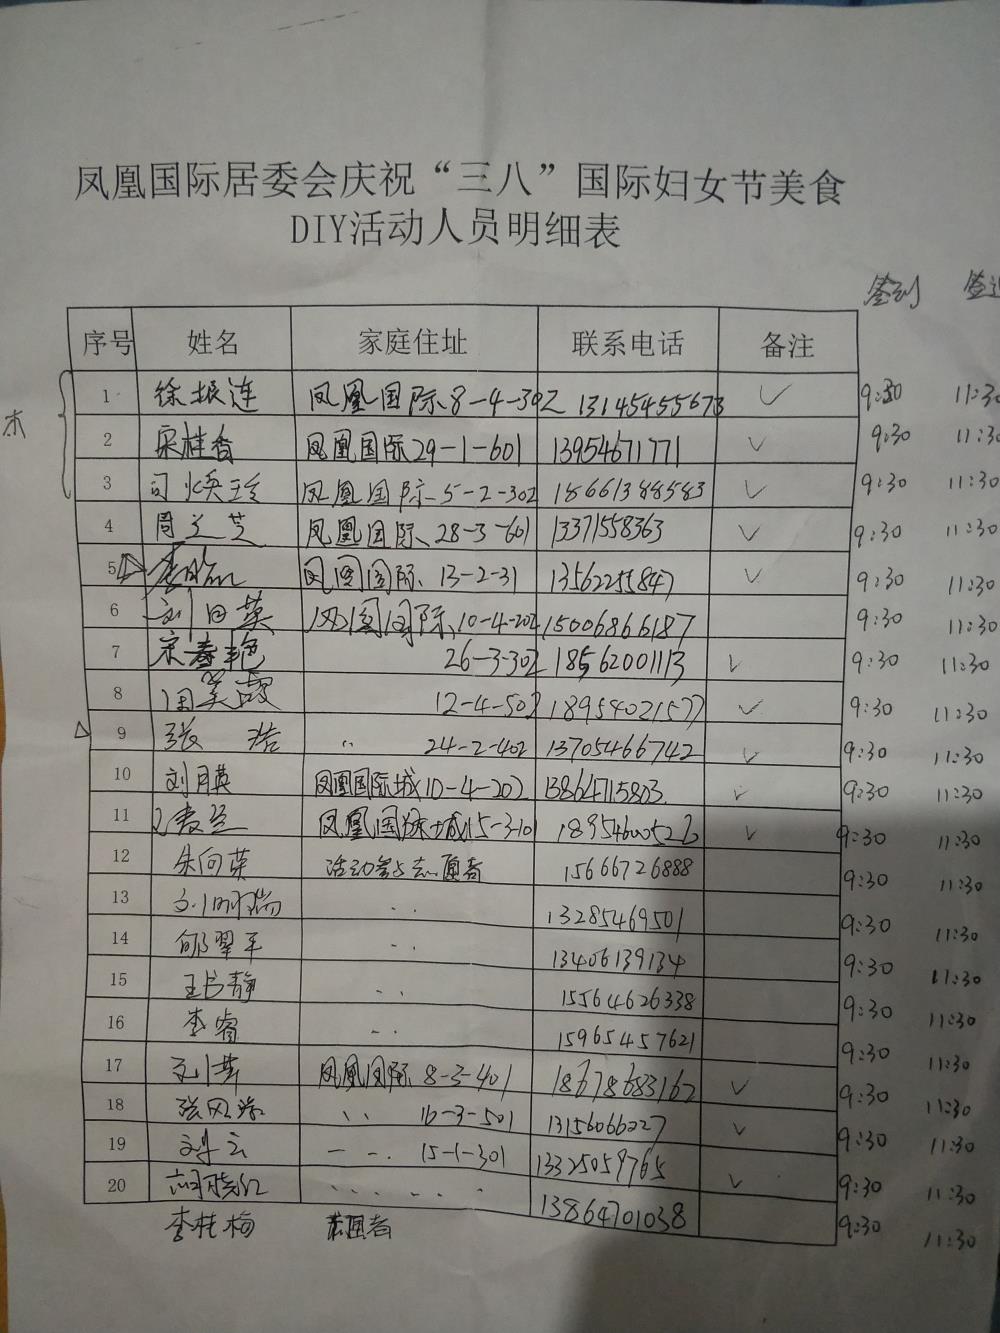 凤凰国际居委会庆祝“三八”国际妇女节美食
DIY活动人员明细表
签到
序号 姓名 家庭住址 联系电话 备注
1 徐振连 凤凰国际8-4-302 13145455673 ✓ 9:30 11:30
2 宋桂香 凤凰国际29-1-601 13954671771 ✓ 9:30 11:30
3 司焕珍 凤凰国际5-2-302 18661388583 ✓ 9:30 11:30
4 周兰芝 凤凰国际28-3-601 13371558363 ✓ 9:30 11:30
5 凤凰国际13-2-31 13562255847 ✓ 9:30 11:30
6 刘月英 凤凰国际10-4-202 15006866187 9:30 11:30
7 宋春艳 26-3-302 18562001113 ✓ 9:30 11:30
8 周美霞 12-4-502 18954021577 ✓ 9:30 11:30
9 张浩 〃 24-2-402 13705466742 ✓ 9:30 11:30
10 刘月英 凤凰国际城10-4-202 13864715803 ✓ 9:30 11:30
11 凤凰国际城15-3-101 ✓ 9:30 11:30
12 朱向荣 活动参与志愿者 15666726888 9:30 11:30
13 〃 13285469501 9:30 11:30
14 郇翠平 〃 13406139134 9:30 11:30
15 王长静 〃 15564626338 9:30 11:30
16 李睿 〃 15965457621 9:30 11:30
17 凤凰国际8-3-401 18678683162 ✓ 9:30 11:30
18 张风 〃 16-3-501 13156066227 ✓ 9:30 11:30
19 〃 15-1-301 13325059765 ✓ 9:30 11:30
20 13864701038 9:30 11:30
李桂梅 志愿者